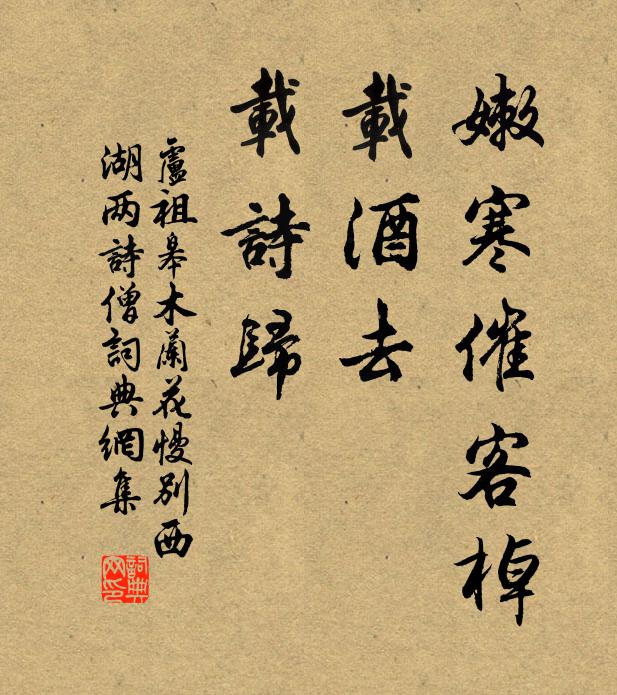 嫩寒催客棹
載酒去
載詩歸
盧祖皋木蘭花慢別西
湖两詩僧詞典網集
詞典
网印